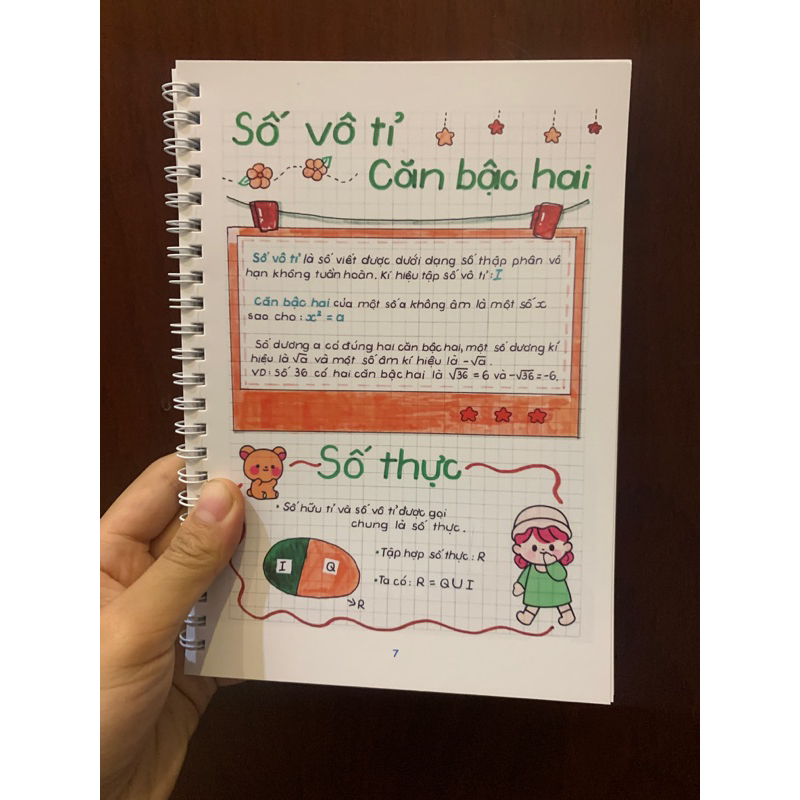 Số vô tỉ
Căn bậc hai
Số vô tỉ là số viết được dưới dạng số thập phân vô
hạn không tuần hoàn. Kí hiệu tập số vô tỉ: I
Căn bậc hai của một số a không âm là một số x
sao cho: x² = a
Số dương a có đúng hai căn bậc hai, một số dương kí
hiệu là √a và một số âm kí hiệu là -√a.
VD: Số 36 có hai căn bậc hai là √36 = 6 và -√36 = -6.
Số thực
• Số hữu tỉ và số vô tỉ được gọi
chung là số thực.
I Q
R
• Tập hợp số thực: R
• Ta có: R = Q∪I
7